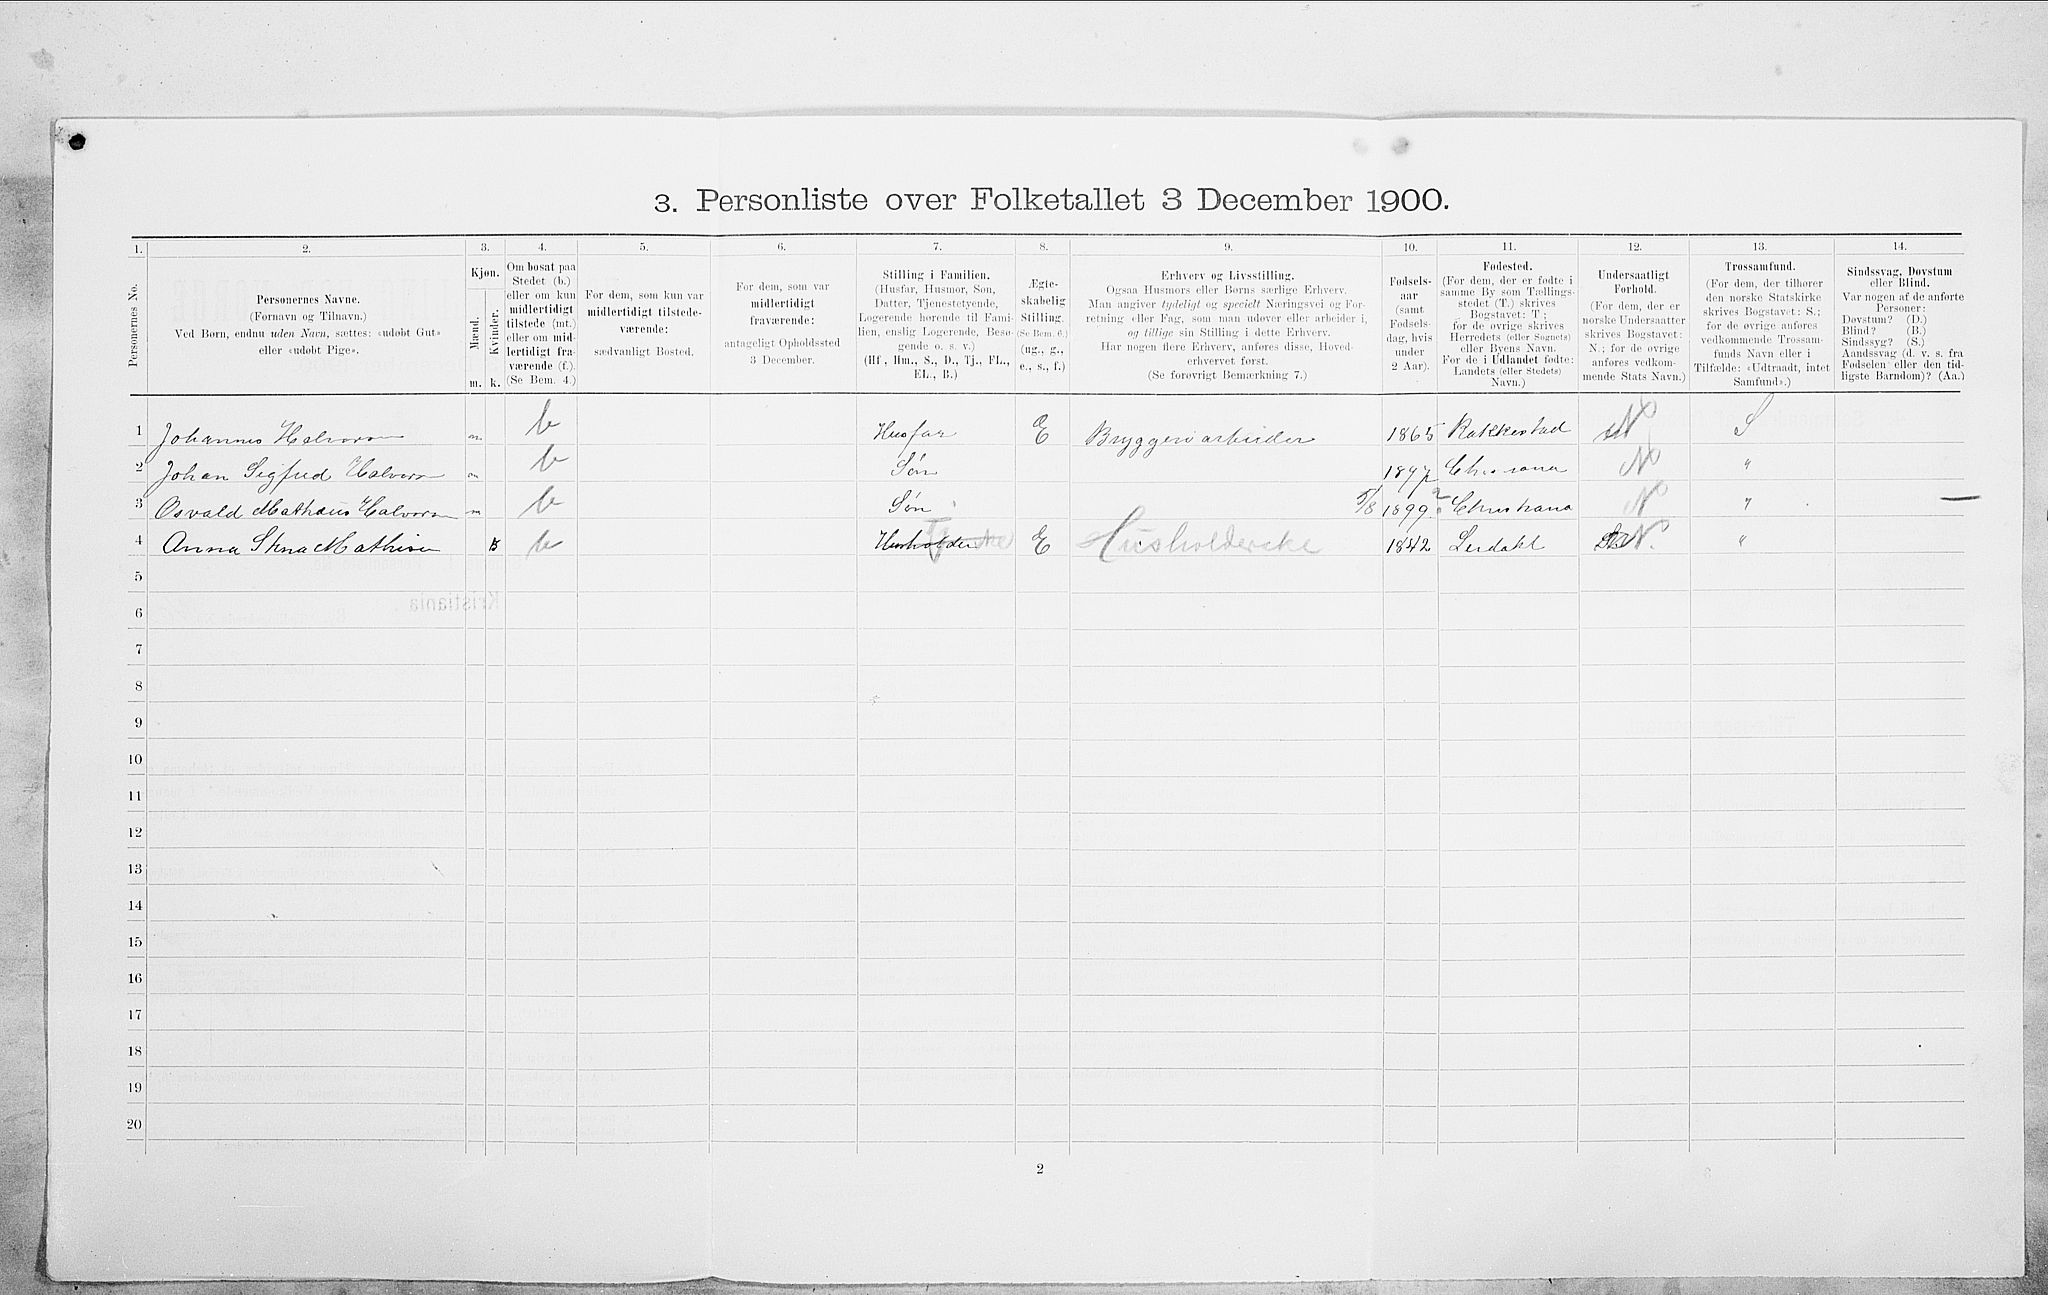 3. Personliste over Folketallet 3 December 1900.
1. 2. 3. 4. 5. 6. 7. 8. 9. 10. 11. 12. 13. 14.
Personernes No.
Personernes Navne.
(Fornavn og Tilnavn.)
Ved Børn, endnu uden Navn, sættes: «udøbt Gut»
eller «udøbt Pige».
Kjøn.
Mænd. Kvinder.
m. k.
Om bosat paa
Stedet (b.)
eller om kun
midlertidigt
tilstede (mt.)
eller om mid-
lertidigt fra-
værende (f.).
(Se Bem. 4.)
For dem, som kun var
midlertidigt tilstede-
værende:
sædvanligt Bosted.
For dem, som var
midlertidigt
fraværende:
antageligt Opholdssted
3 December.
Stilling i Familien.
(Husfar, Husmor, Søn,
Datter, Tjenestetyende,
Logerende hørende til Fami-
lien, enslig Logerende, Besø-
gende o. s. v.)
(Hf., Hm., S., D., Tj., FL.,
EL., B.)
Ægte-
skabelig
Stilling.
(Se Bem. 6.)
(ug., g.,
e., s., f.)
Erhverv og Livsstilling.
Ogsaa Husmors eller Børns særlige Erhverv.
Man angiver tydeligt og specielt Næringsvei og For-
retning eller Fag, som man udøver eller arbeider i,
og tillige sin Stilling i dette Erhverv.
Har nogen flere Erhverv, anføres disse, Hoved-
erhvervet først.
(Se forøvrigt Bemærkning 7.)
Fødsels-
aar
(samt
Fødsels-
dag, hvis
under
2 Aar).
Fødested.
(For dem, der er fødte i
samme By som Tællings-
stedet (T.) skrives
Bogstavet: T.;
for de øvrige skrives
Herredets (eller Sognets)
eller Byens Navn.
For de i Udlandet fødte:
Landets (eller Stedets)
Navn.)
Undersaatligt
Forhold.
(For dem, der er
norske Undersaatter
skrives Bogstavet:
N.; for de øvrige
anføres vedkom-
mende Stats Navn.)
Trossamfund.
(For dem, der tilhører
den norske Statskirke
skrives Bogstavet: S.;
for de øvrige anføres
vedkommende Trossam-
funds Navn eller i
Tilfælde: «Udtraadt, intet
Samfund».)
Sindssvag, Døvstum
eller Blind.
Var nogen af de anførte
Personer:
Døvstum? (D.)
Blind? (B.)
Sindssyg? (S.)
Aandssvag (d. v. s. fra
Fødselen eller den tid-
ligste Barndom)? (Aa.)
1 Johannes Halvorsen m b Husfar E Bryggeri arbeider 1865 Rakkestad N S
2 Johan Sigfred Halvorsen m b Søn 1897 N "
3 Osvald Mathæus Halvorsen m b Søn 5/8 1899 Christiana N "
4 Anna Stina Mathisen k b Husholder E Husholderske 1842 N. "
5
6
7
8
9
10
11
12
13
14
15
16
17
18
19
20
2